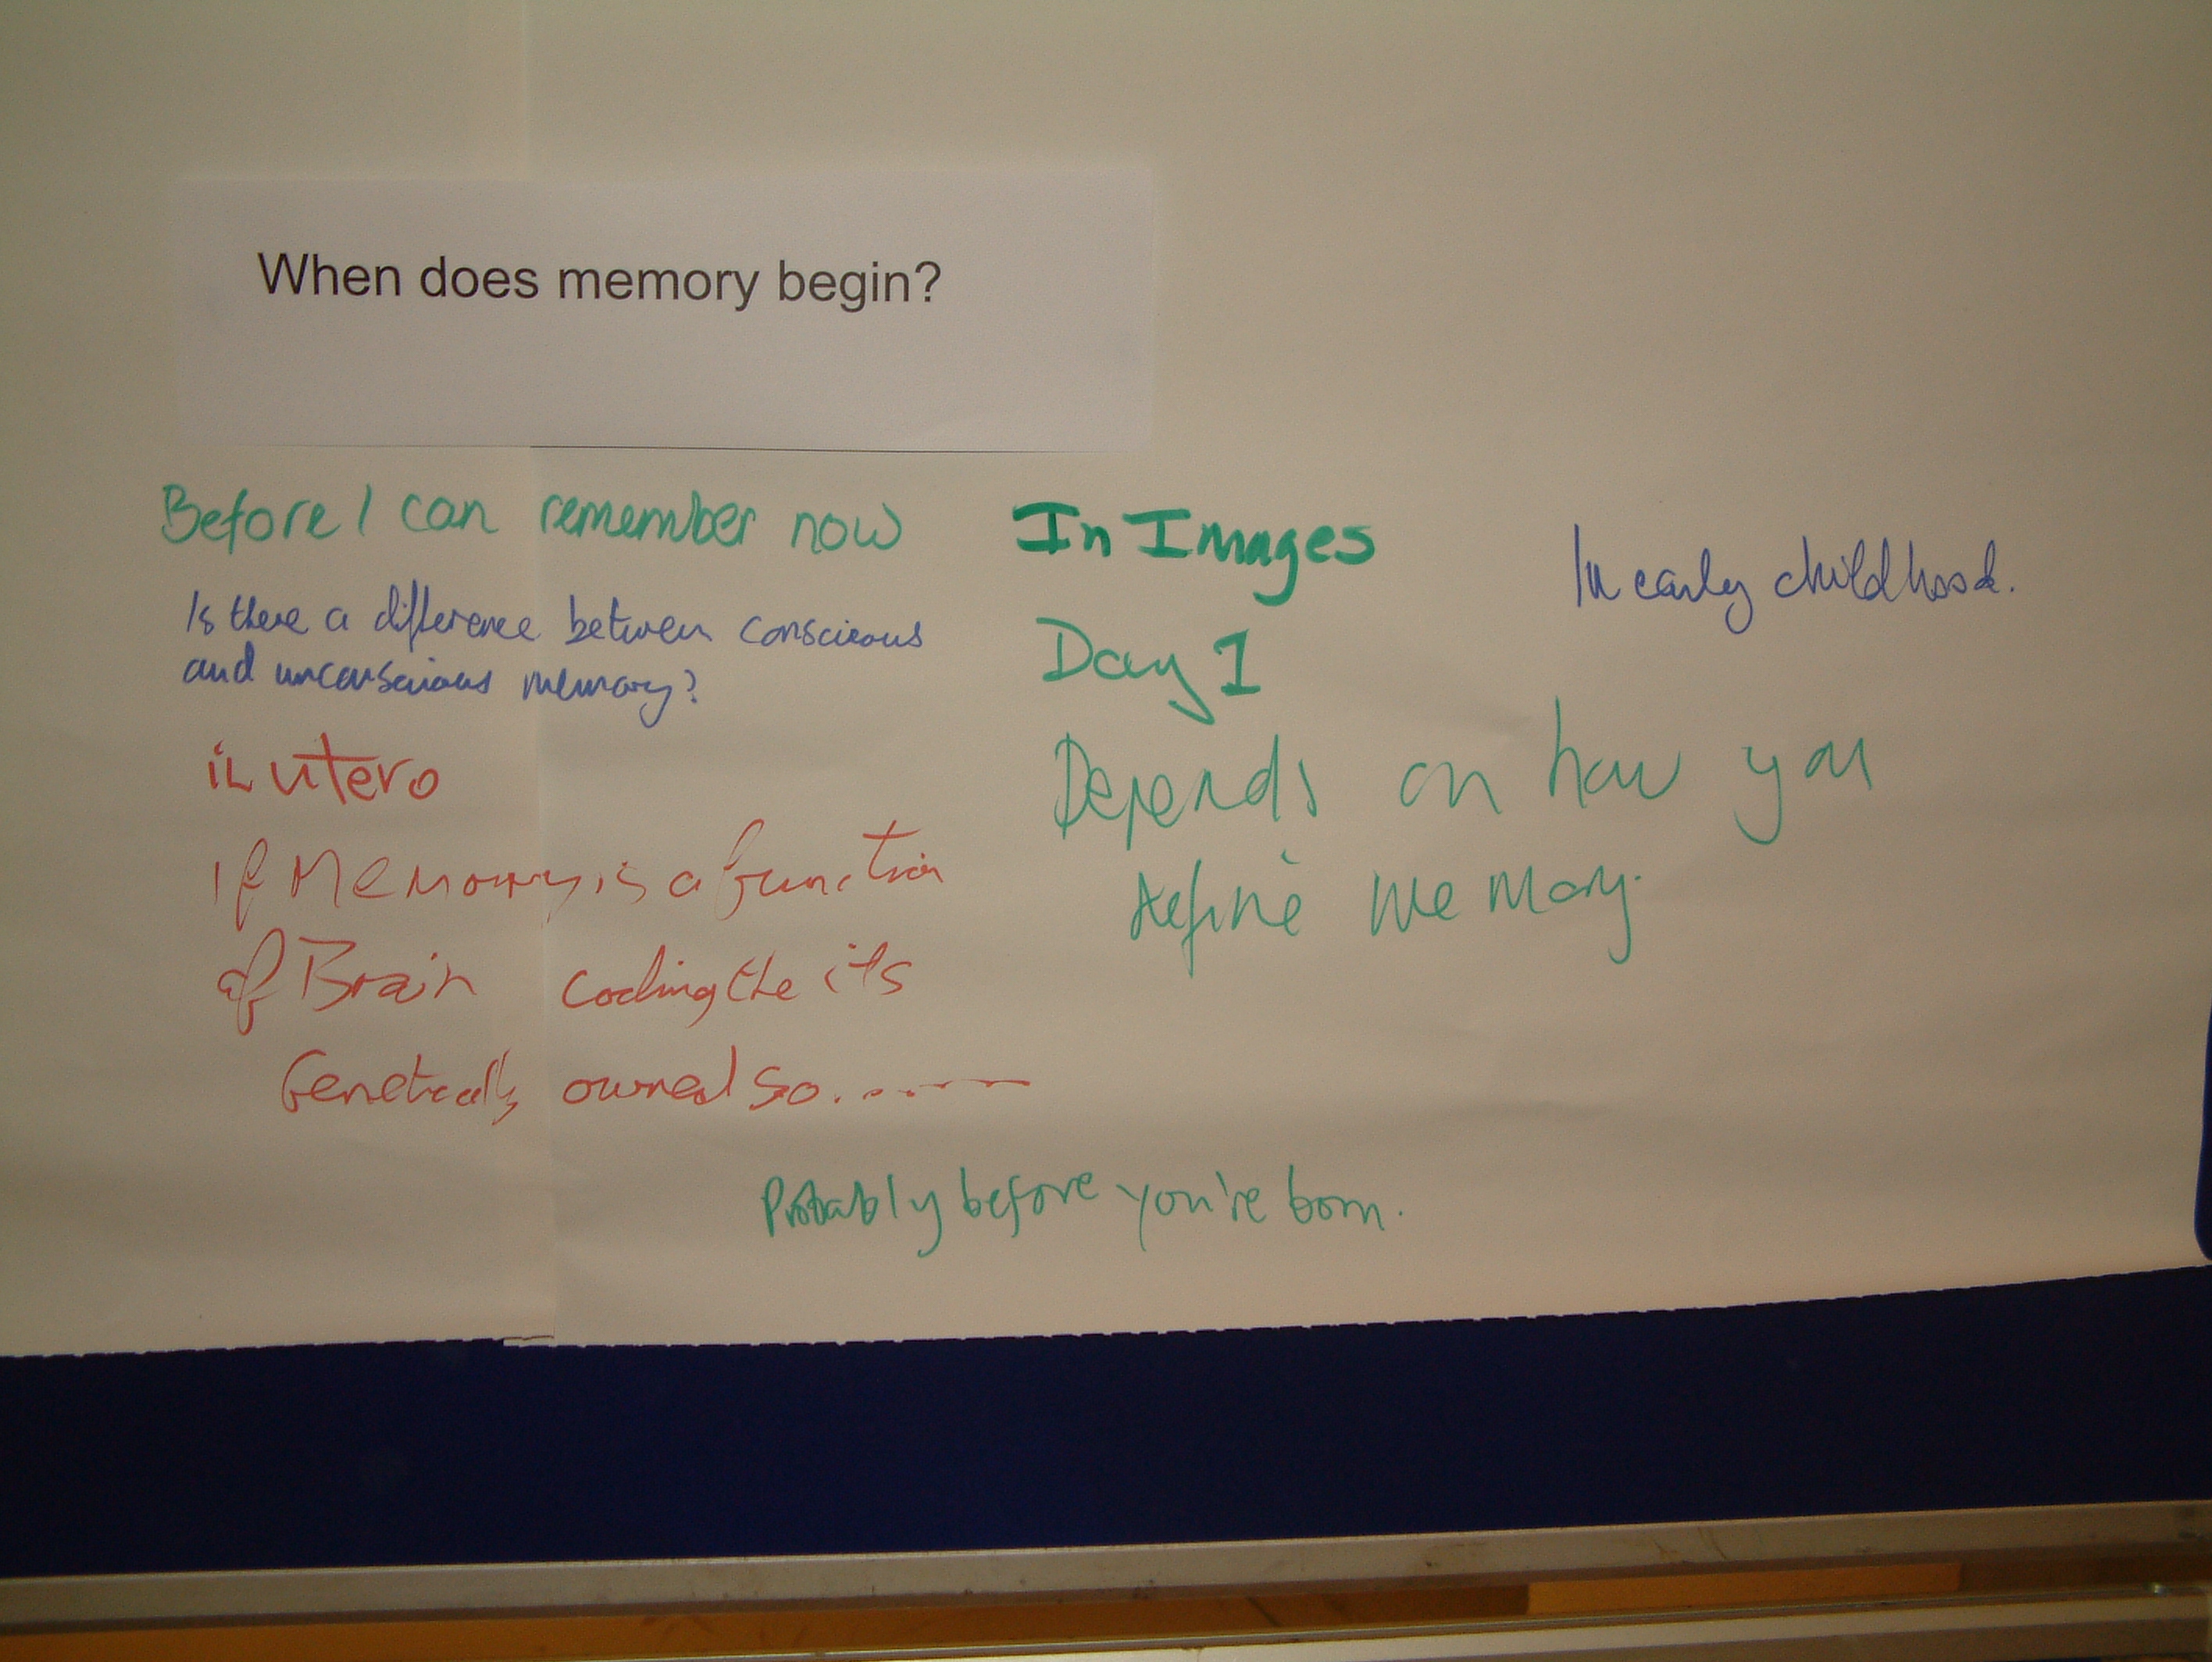 When does memory begin?
Before I can remember now
Is there a difference between conscious
and unconscious memory?
in utero
If Memory is a function
of Brain coding the its
Genetically owned so.......
In Images
Day 1
Depends on how you
define memory.
In early childhood.
Probably before you're born.